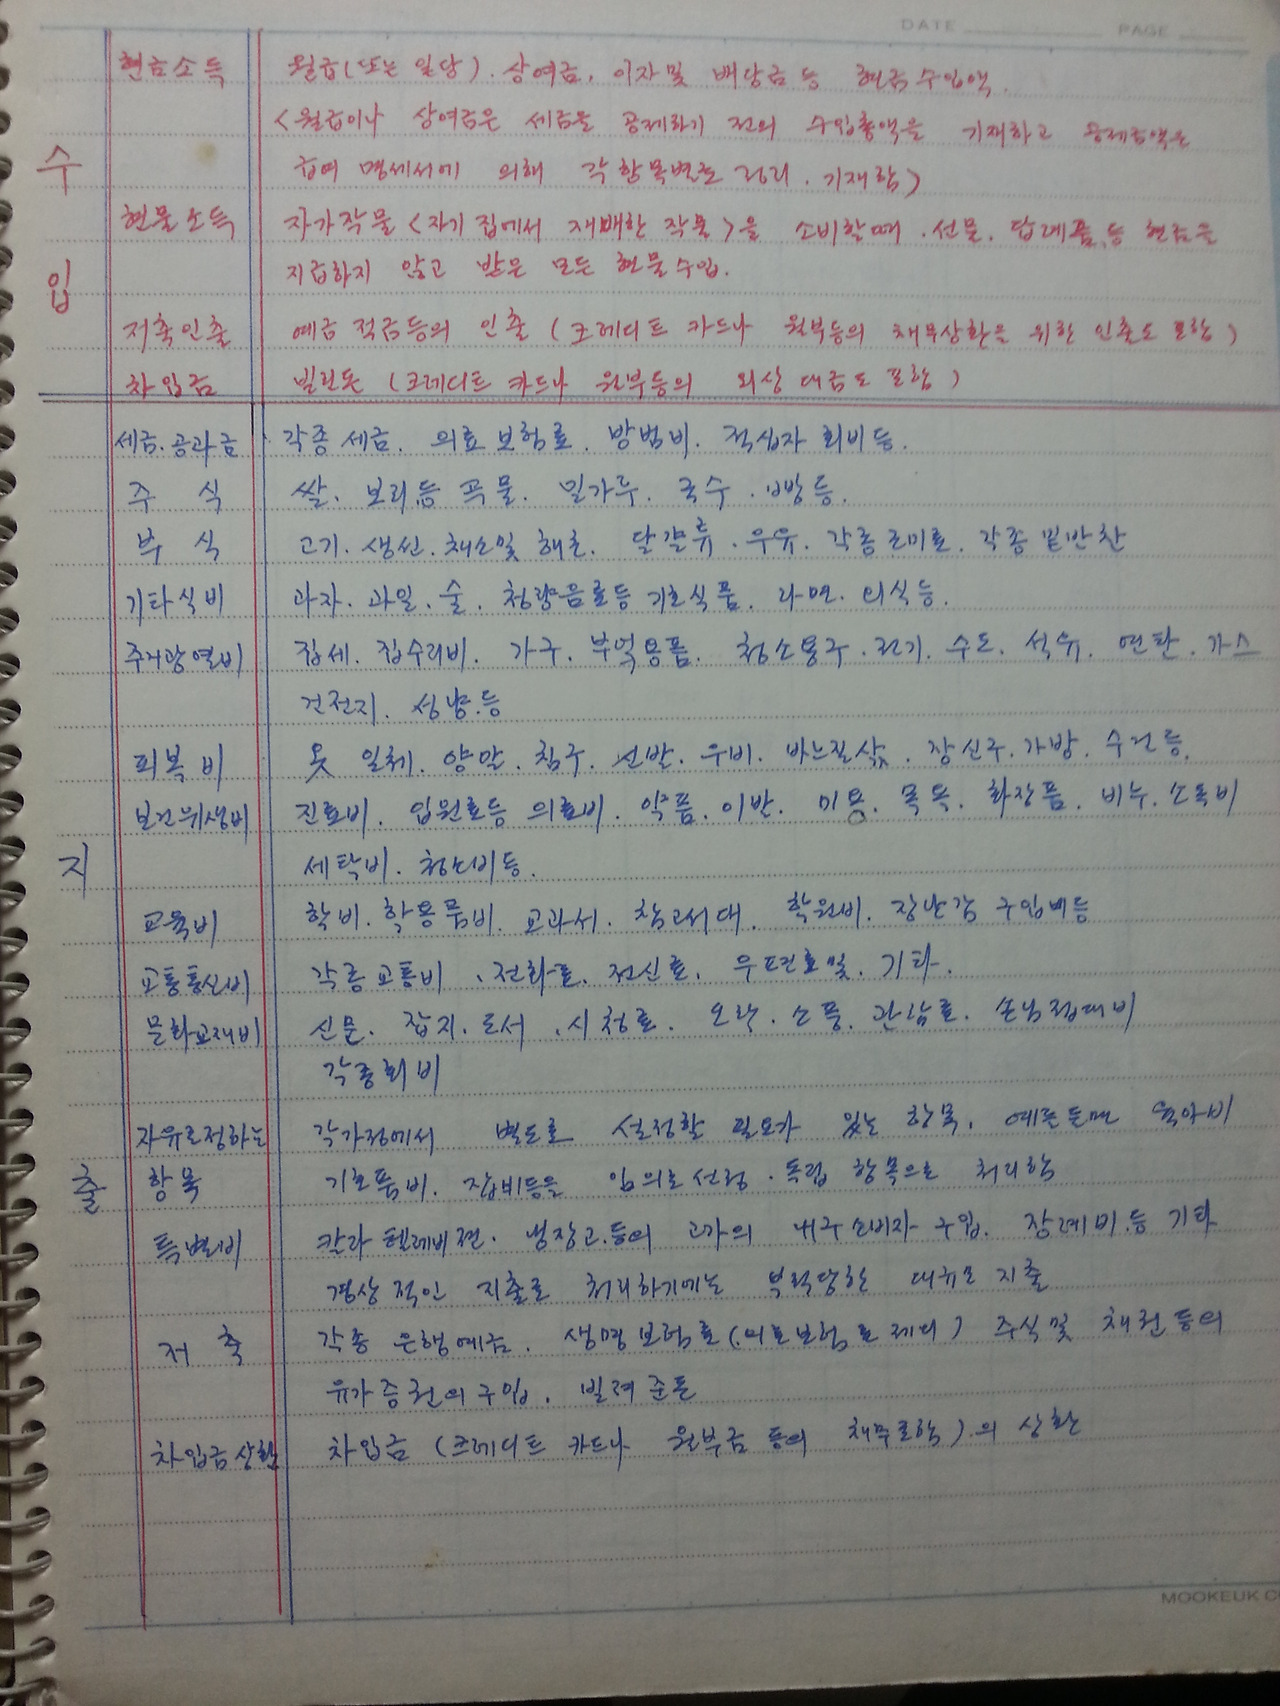 DATE PAGE
현금소득 월급(또는 일당). 상여금, 이자 및 배당금 등 현금수입액.
<월급이나 상여금은 세금을 공제하기 전의 수입총액을 기재하고 공제금액은
수 급여 명세서에 의해 각 항목별로 정리. 기재함>
현물소득 자가작물<자기 집에서 재배한 작물>을 소비할때. 선물. 답례품 등 현금을
입 지급하지 않고 받은 모든 현물수입.
저축인출 예금 적금등의 인출 (크레디트 카드나 월부등의 채무상환을 위한 인출도 포함)
차입금 빌린돈 (크레디트 카드나 월부등의 외상 대금도 포함)
세금.공과금 각종 세금. 의료보험료. 방범비. 적십자 회비등.
주 식 쌀. 보리등 곡물. 밀가루. 국수. 빵등.
부 식 고기. 생선. 채소및 해초. 달걀류. 우유. 각종 조미료. 각종 밑반찬
기타식비 과자. 과일. 술. 청량음료등 기호식품. 라면. 외식등.
주거광열비 집세. 집수리비. 가구. 부엌용품. 청소용구. 전기. 수도. 석유. 연탄. 가스
건전지. 성냥.등
피복비 옷 일체. 양말. 침구. 신발. 우비. 바느질삯. 장신구. 가방. 수건등.
보건위생비 진료비. 입원료등 의료비. 약품. 이발. 미용. 목욕. 화장품. 비누. 소독비
지 세탁비. 청소비등.
교육비 학비. 학용품비. 교과서. 참고서대. 학원비. 장난감 구입비등
교통통신비 각종교통비. 전화료. 전신료. 우편료및. 기타.
문화교재비 신문. 잡지. 도서. 시청료. 오락. 소풍. 관람료. 손님접대비
각종회비
자유로정하는 각가정에서 별도로 설정할 필요가 있는 항목. 예를들면 육아비
출 항목 기호품비. 잡비등을 임의로 선정. 독립 항목으로 처리함
특별비 칼라 텔레비젼. 냉장고.등의 고가의 내구소비자 구입. 장례비.등 기타
경상적인 지출로 처리하기에는 부적당한 대규모 지출
저 축 각종 은행예금. 생명보험료(의료보험료 제외) 주식및 채권등의
유가증권의 구입. 빌려준돈
차입금상환 차입금 (크레디트 카드나 월부금 등의 채무포함)의 상환